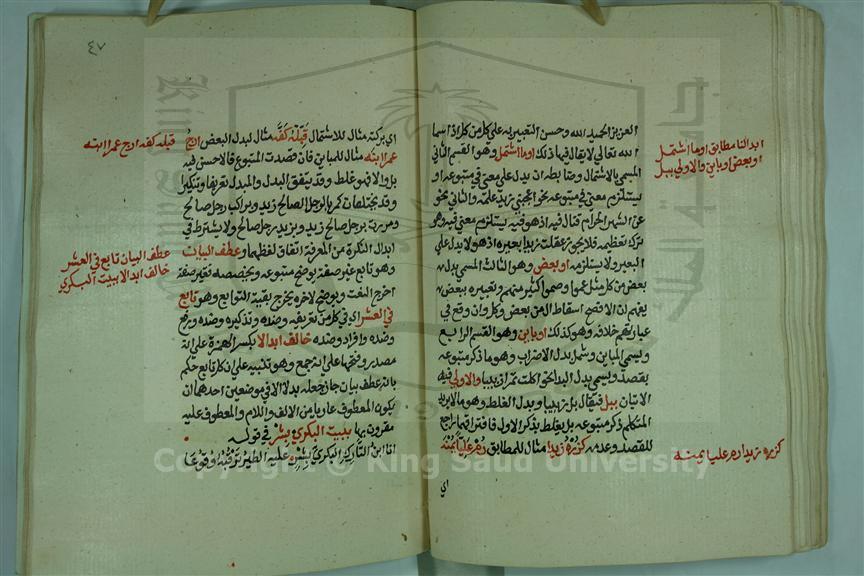 العزيز الحميد الله وحسن التعبير به على كل من كل اذ اسما
الله تعالى لا يقال فيها ذلك اوما اشتمل وهو القسم الثاني
المسمى بالاشتمال وضابطه ان يدل على معنى في متبوعه او
يستلزم معنى في متبوعه نحو اعجبني زيد علمه والثاني نحو
عن الشهر الحرام قتال فيه اذ هو فيه يستلزم معنى فيه وهو
ترك تعظيمه فلا يجوز عقلت زيدا بعيره اذ هو لا يدل على
البعير ولا يستلزمه او بعض وهو الثالث المسمى بدل
بعض من كل مثل عموا وصموا كثير منهم وتعبيره ببعض
يفهم ان الافصح اسقاط ال من بعض وكل وان وقع في
عباراتهم خلافه وهو كذلك او باين وهو القسم الرابع
ويسمى المباين وشمل بدل الاضراب وهو ما ذكر متبوعه
بقصد ويسمى بدل البدا نحو اكلت تمرا زبيبا والاولى فيه
الاتيان ببل فيقال بل زبيبا وبدل الغلط وهو ما لا يريد
المتكلم ذكر متبوعه بل يغلط بذكر الاول فافتراقهما راجع
للقصد وعدمه كزره زيدا مثال للمطابق رم عليا يمنه
اي
ابدالنا مطابق اوما اشتمل
او بعض او باين والاولى ببل
كزره زيدا رم عليا يمنه
٤٧
اي بركته مثال للاشتمال قبله كفه مثال لبدل البعض ارج
عمرا ابنه مثال للمباين فان قصدت المتبوع فالاحسن فيه
بل والا فهو غلط وقد يتفق البدل والمبدل تعريفا وتنكيرا
وقد يختلفان كمر بالرجل الصالح زيد وبراكب رجل صالح
ومررت برجل صالح زيد وبزيد رجل صالح ولا يشترط في
ابدال النكرة من المعرفة اتفاق لفظهما وعطف البيان
وهو تابع غير صفة يوضح متبوعه ويخصصه فغير صفة
اخرج النعت ويوضح لاخره يخرج بقية التوابع وهو تابع
في العشر اي في كل من تعريف وضده وتذكيره وضده ورفع
وضده وافراد وضده خالف ابدالا بكسر الهمزة على انه
مصدر وفتحها على انه جمع وهو تنبيه على ان كل تابع حكم
بانه عطف بيان جاز جعله بدلا الا في موضعين احدهما ان
يكون المعطوف عاريا من الالف واللام والمعطوف عليه
مقرون بها ببيت البكري بشر في قوله
انا ابن التارك البكري بشر عليه الطير ترقبه وقوعا
قبله كفه ارج عمرا ابنه
عطف البيان تابع في العشر
خالف ابدالا ببيت البكري
Copyright © King Saud University